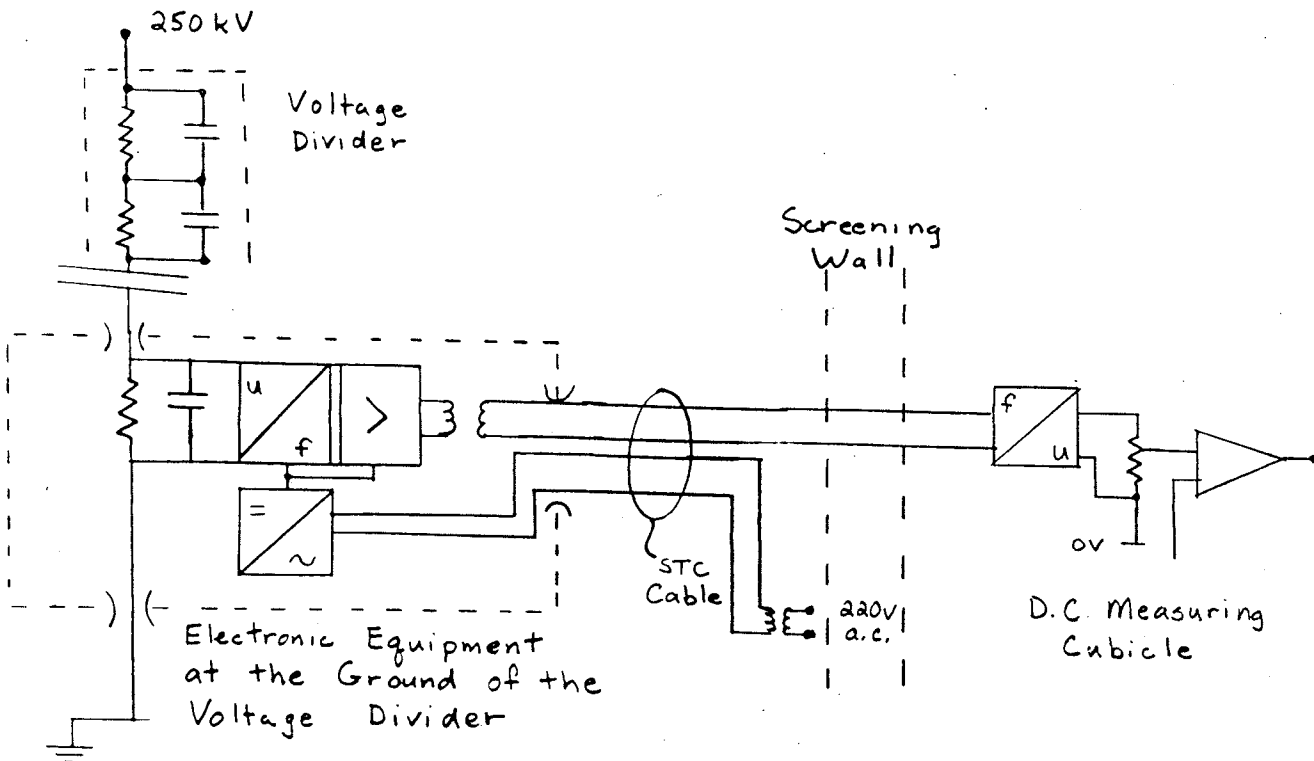 250 kV
Voltage
Divider
Screening
Wall
u
f
>
=
~
STC
Cable
220v
a.c.
f
u
0V
D.C. Measuring
Cubicle
Electronic Equipment
at the Ground of the
Voltage Divider